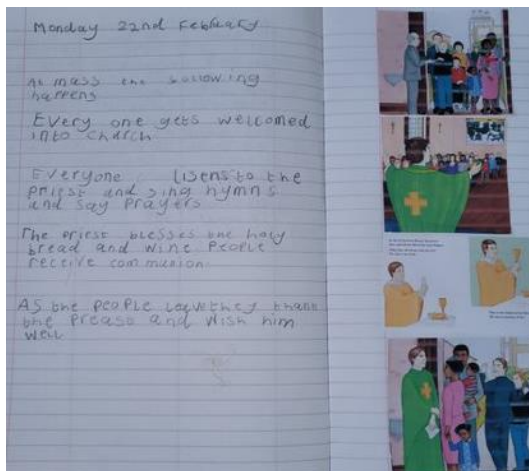 Monday 22nd February
At mass the following
happens
Every one gets welcomed
into church
Everyone lisens to the
Priest and sing hymns
and say prayers
The Priest blesses the holy
bread and wine People
receive communion.
As the people leave they thank
the Preast and wish him
well